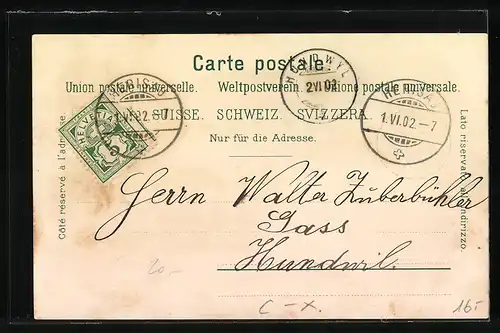 Carte postale.
Union postale universelle. Weltpostverein. Unione postale universale.
SUISSE. SCHWEIZ. SVIZZERA.
Nur für die Adresse.
Côté réservé à l'adresse.
Lato riservato all'indirizzo.
HELVETIA
5
HERISAU
1.VI.02.-7
HUNDWYL
2.VI.02.
HERISAU
1.VI.02.-7
Herrn Walter Zuberbühler
Gass
Hundwil.
20.-
C-X.
16.-